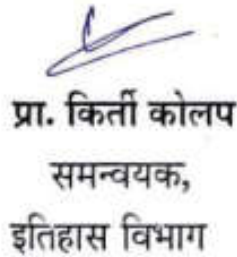 प्रा. किर्ती कोलप
समन्वयक,
इतिहास विभाग